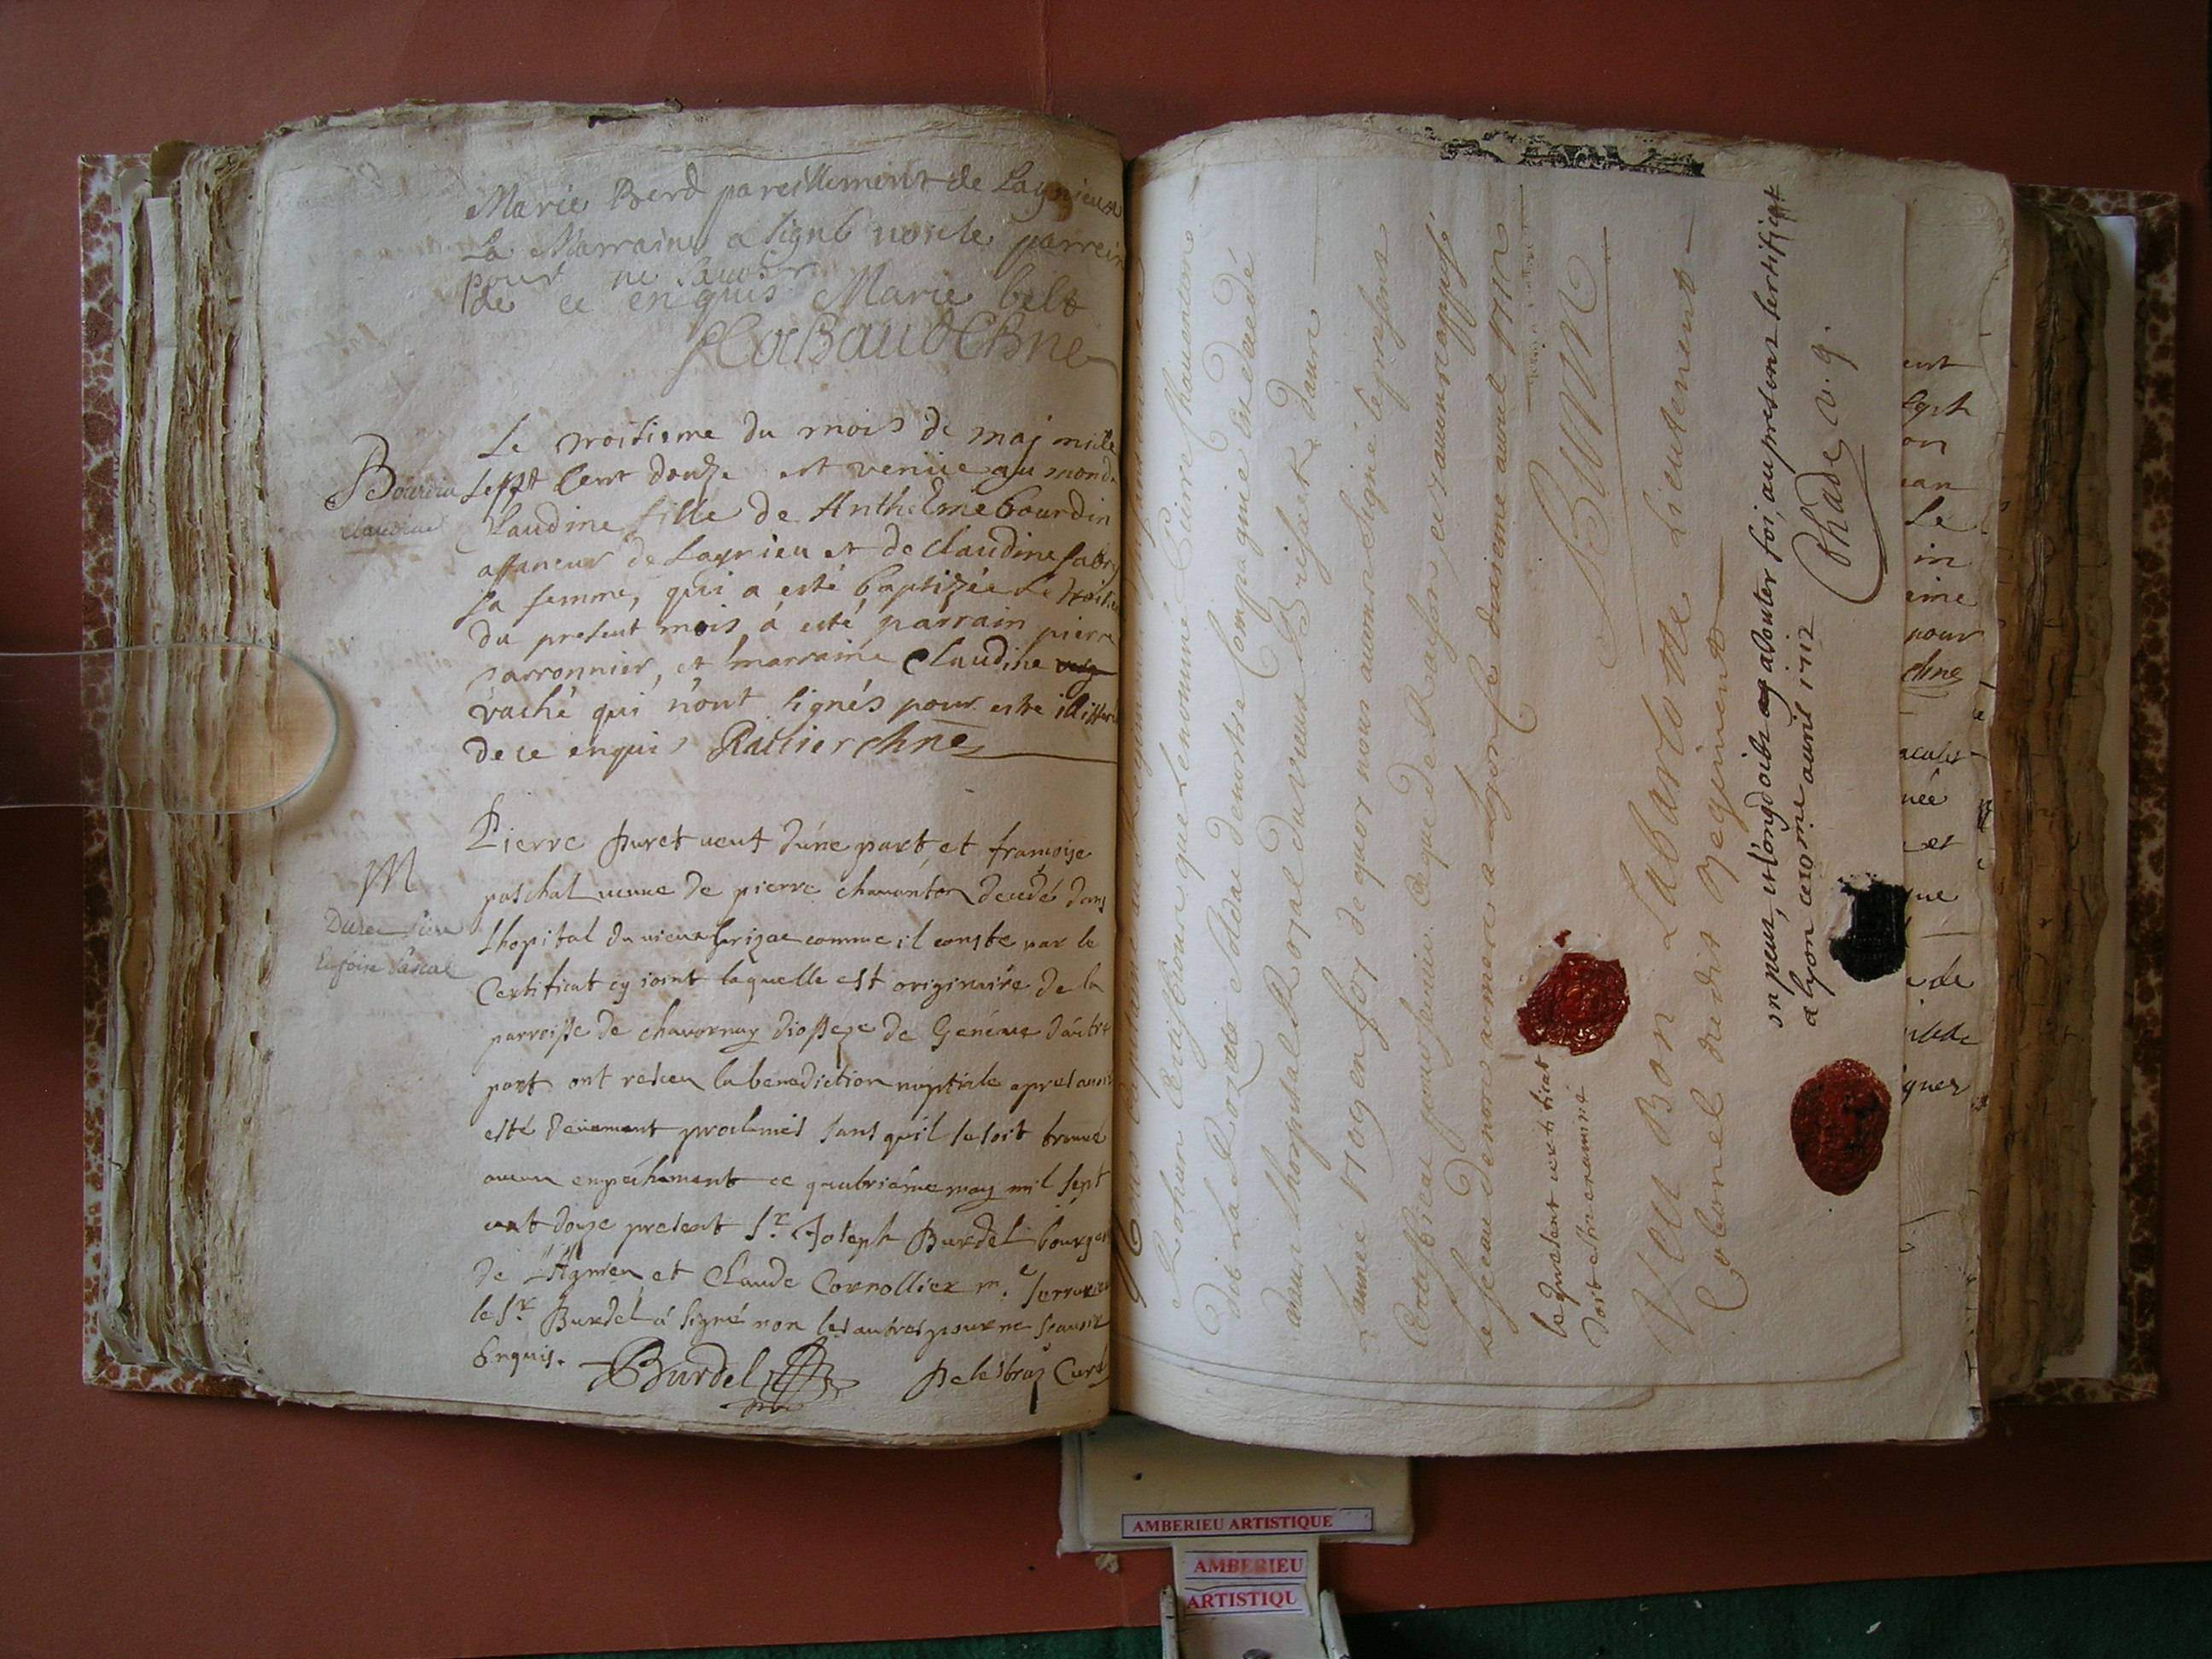 Marie Berd pareillement de Lagnieu
La Marraine a signé non le parrein
pour ne sauoir
de ce enquis Marie belt
Bourdin
claudine
Le troisieme du mois de maj mille
sept cent douze est venue au monde
Claudine fille de Anthelme bourdin
affaneur de Lagnieu et de claudine
sa femme, qui a esté baptizée Le troisie
du present mois, a esté parrain pierre
sarronnier, et marraine Claudine
vaché qui n'ont signés pour estre illiter
de ce enquis Rattier chne
M
Duret Piere
Pascal
Pierre Duret ueuf d'une part, et francoise
paschal ueuue de pierre chauanton decedé dans
Lhopital du uieux brizac comme il conste par le
Certificat cy joint laquelle est originaire de la
parroisse de chauornay diossese de Geneue d'autre
part ont receu la benediction nuptiale apres auoir
esté deuement proclamés sans qu'il se soit trouué
aucun empechement ce quatriéme may mil sept
cent doze present Sr. Joseph Burdel bourgeo
de Lagnieu et Claude Cornollier me. serrurier
le Sr. Burdel a signé non les autres pour ne scauoir
Enquis. Burdel Delesbraz Curé
certiffions que le nommé Pierre Chauentom
dit La Roze Soldat de notre Compagnie est decedé
dans Lhopital Royal du vieux Brisack dans
Lannée 1709 en foy de quoy nous auons signé le present
Certifficat pour seruir ce que de Raison et y auons apposé
le sceau de nos armes a Lyon le dixieme auril 1712
Le present certificat
doit estre examiné
Veu Bon Labartotte Lieutenent
Colonel du dit Regiment
on peut, et l'on doibt adiouter foi, au present certificat
a lyon ce 10me auril 1712
AMBERIEU ARTISTIQUE
AMBERIEU
ARTISTIQU